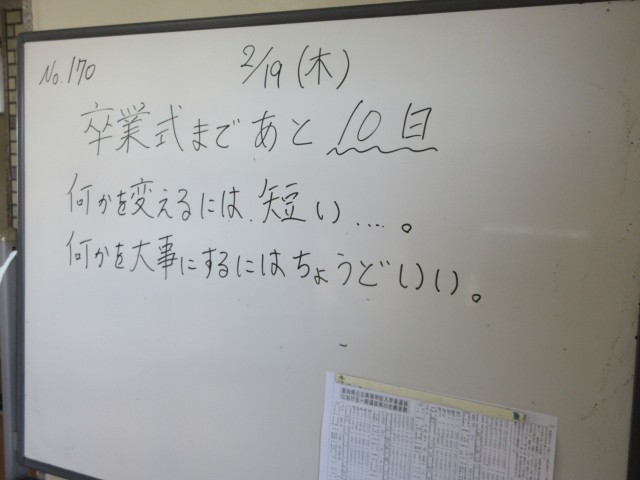 No.170
2/19(木)
卒業式まであと10日
何かを変えるには、短い….。
何かを大事にするにはちょうどいい。